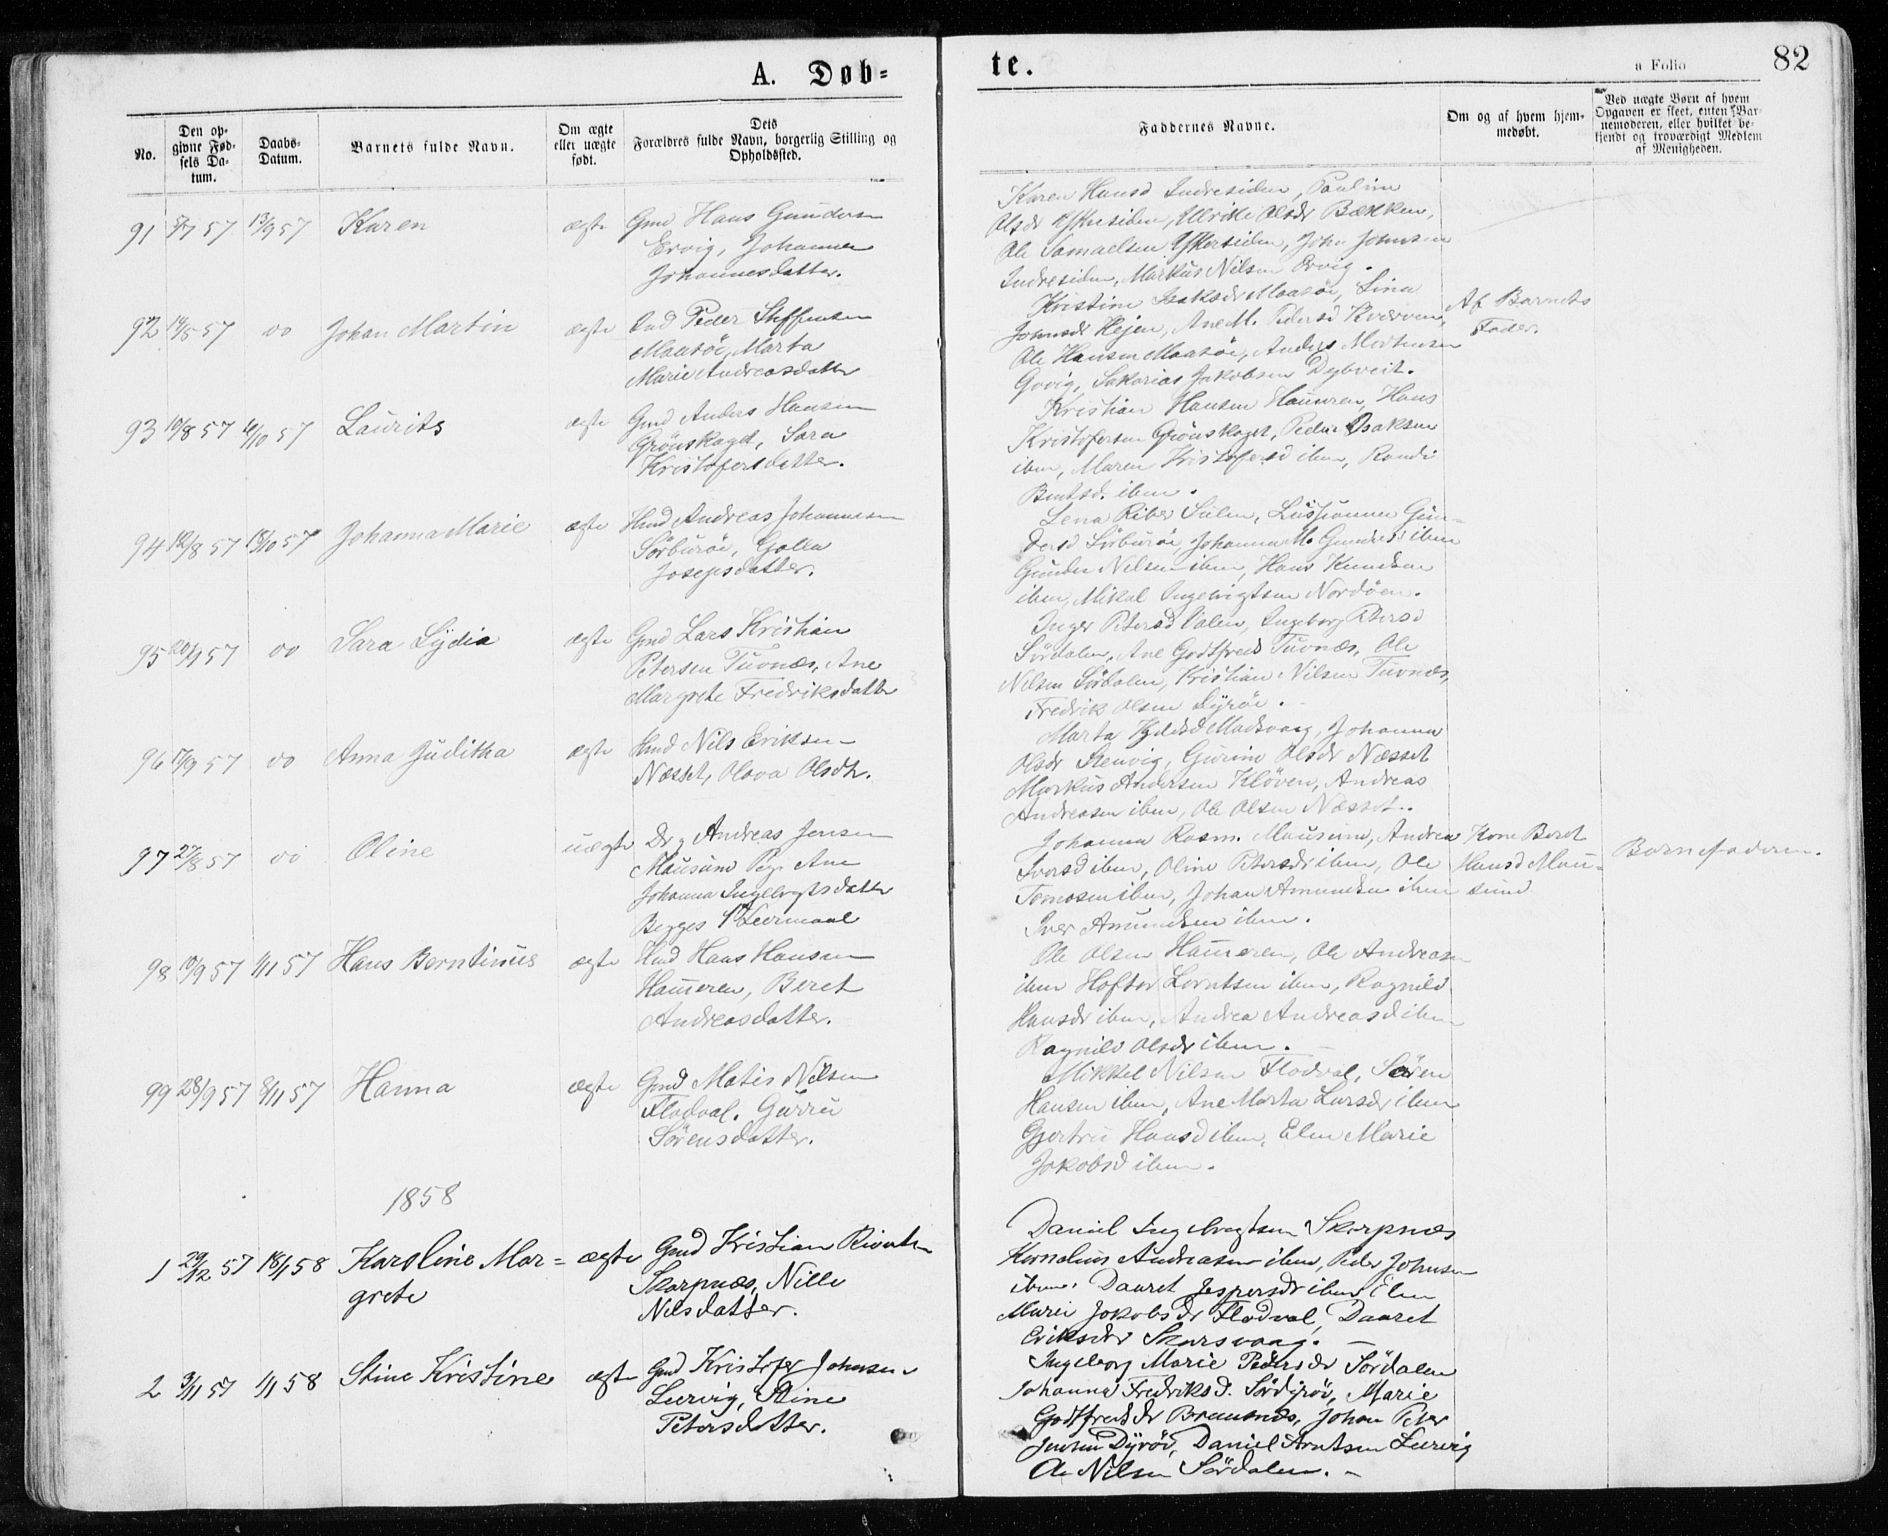 A. Døb=
te.
a Folio 82
No.
Den op-
givne Fød-
sels Da-
tum.
Daabs-
Datum.
Barnets fulde Navn.
Om ægte
eller uægte
født.
Dets
Forældres fulde Navn, borgerlig Stilling og
Opholdssted.
Faddernes Navne.
Om og af hvem hjem-
medøbt.
Ved uægte Børn af hvem
Opgaven er skeet, enten Bar-
nemoderen, eller hvilket be-
kjendt og troværdigt Medlem
af Menigheden.
91 5/7 57 13/9 57 Karen ægte Gmd Hans Gundersen
Ervig, Johanna
Johannesdatter.
Karen Hansd Indresiden, Pauline
Olsdr Yttresiden, Ulrikke Olsdr Bækken,
Ole Samuelsen Yttersiden, John Johnsen
Indresiden, Markus Nilsen Ervig.
92 14/5 57 oo Johan Martin ægte Ind Peder Steffensen
Maasøi, Marta
Marie Andreasdatter
Kristine Isaksdr Maasøi, Lina
Johnsdr Hejen, Ane M. Pedersd Kverven,
Ole Hansen Maasøi, Anders Mortensen
Govig, Sakarias Jakobsen Dybveit.
Af Barnets
Fader.
93 10/8 57 4/10 57 Laurits ægte Gmd Anders Hansen
Grönskaget, Sara
Kristofersdatter.
Kristian Hansen Hammren, Hans
Kristofersen Grönskaget, Peder Isaksen
ibm, Maren Kristofersd ibm, Randi
Berntsd. ibm.
94 12/8 57 18/10 57 Johanna Marie ægte Hmd Andreas Johannesen
Sörburöi, Golla
Josepsdatter.
Lena Riber Sulen, Lusianna Gun-
dersd Sörburöi Johanna M. Gundersd ibm
Gunder Nilsen ibm, Hans Knudsen
ibm, Mikal Ingebrigtsen Nordöen.
95 20/9 57 oo Sara Lydia ægte Gmd Lars Kristian
Petersen Tuvnæs, Ane
Margrete Fredriksdatter
Inger Petersd Dalen, Ingeborg Petersd
Sördalen, Ane Godtfreds Tuvnæs, Ole
Nilsen Sördalen, Kristian Nilsen Tuvnæs,
Fredrik Olsen Dyröi.
96 17/9 57 oo Anna Juditha ægte Hmd Nils Eriksen
Næsset, Olava Olsdtr.
Marta Madsvaag, Johanna
Olsdr Stenvig, Gurine Olsdr Næsset
Markus Andersen Klöven, Andreas
Andreasen ibm, Ole Olsen Næsset.
97 27/8 57 oo Oline uægte Dr. Andreas Jensen
Mausund Pg. Ane
Johanna Ingebrigtsdatter
Begges 1ste Leiermaal
Johanna Rasm. Mausund, Andrea
Iversd ibm, Oline Petersdr ibm, Ole
Tomasen ibm, Johan Amundsen ibm
Iver Amundsen ibm.
Kone Beret
Hansd Mau-
sund
Barnefaderen.
98 10/9 57 1/11 57 Hans Berntinus ægte Hmd Hans Hansen
Hammeren, Beret
Andreasdatter.
Ole Olsen Hammeren, Ole Andreasen
ibm Hoftor Lorntsen ibm, Ragnild
Hansdr ibm, Andrea Andreasd ibm
Ragnild Olsdr ibm.
99 28/9 57 8/11 57 Hanna ægte Gmd Matis Nilsen
Flodval, Gurru
Sörensdatter.
Mikkel Nilsen Flodval, Sören
Hansen ibm, Ane Marta Larsdr ibm
Gjertru Hansd ibm, Elen Marie
Jakobsd ibm.
1858
1 29/12 57 18/1 58 Karoline Mar=
grete
ægte Gmd Kristian
Skarpnæs, Nille
Nilsdatter.
Daniel Ingebregtsen Skarpnæs
Kornelius Andreasen ibm, Peder Johnsen
ibm. Daaret Jespersdr ibm Elen
Marie Jakobsdr Flodval, Daaret
Eriksdr Skarsvaag.
2 3/11 57 1/1 58 Stine Kristine ægte Gmd Kristofer Johnsen
Leervig, Stine
Petersdatter.
Ingeborg Marie Pedersdr Sördalen
Johanna Fredriksd. Sördyröi, Marie
Godtfredsdr Bremnæs, Johan Peter
Jensen Dyröi, Daniel Arntsen Leervig
Ole Nilsen Sördalen.